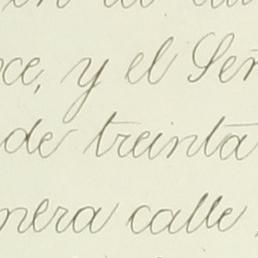 ce, y el Señ
de treinta
nera calle